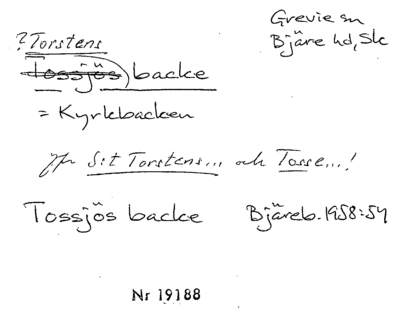 Grevie sn
Bjäre hd, Sk
? Torstens
Tossjös backe
= Kyrkbacken
Jfr S:t Torstens... och Tosse...!
Tossjös backe Bjäreb. 1958:54
Nr 19188